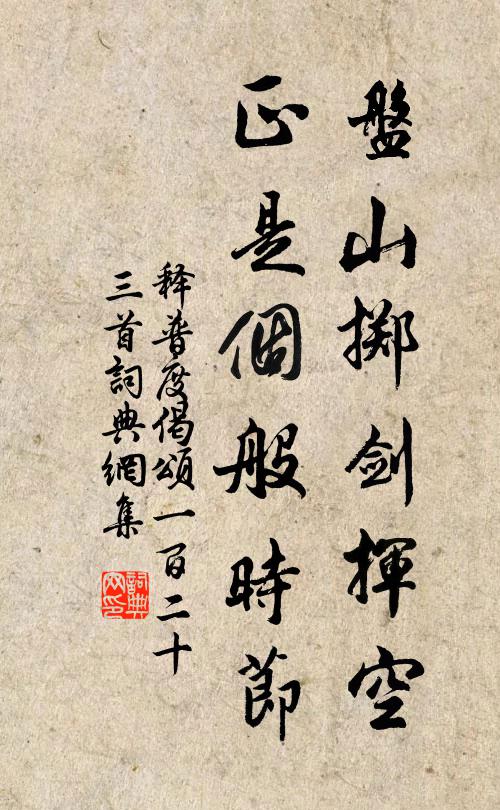 盤山掷剑揮空
正是個般時節
释普度偈頌一百二十
三首詞典網集
詞典
网印